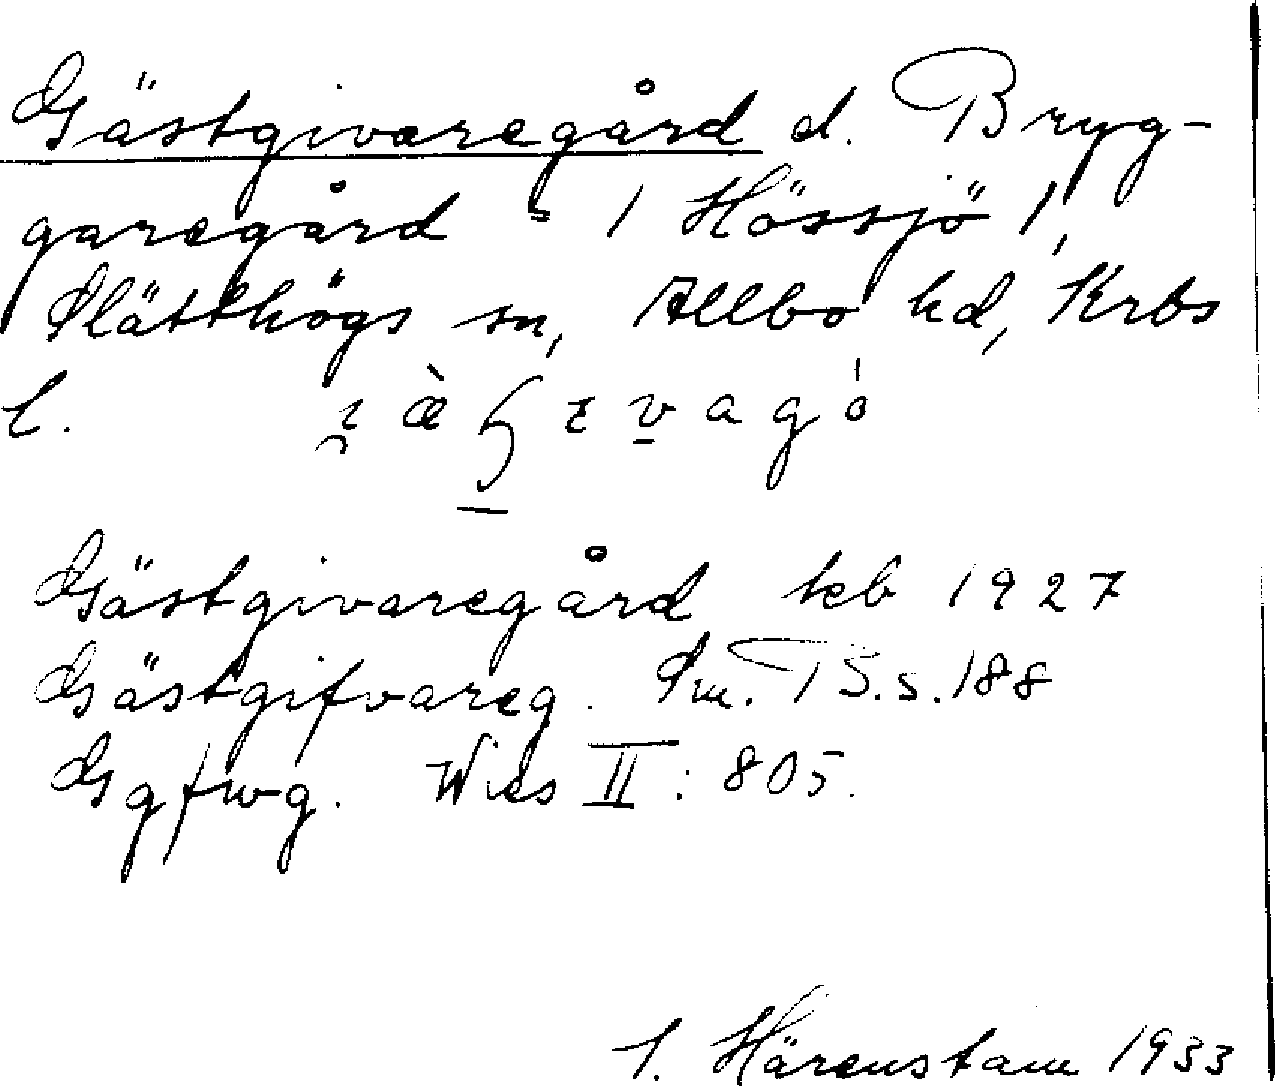 Gästgivaregård d. Bryg-
garegård = / Hössjö /,
Slätthögs sn, Allbo hd, Krbs
l.
Gästgivaregård teb 1927
Gästgifvareg. Sm. TB. s. 188
Ggfwg. Wies II : 805.
I. Härenstam 1933